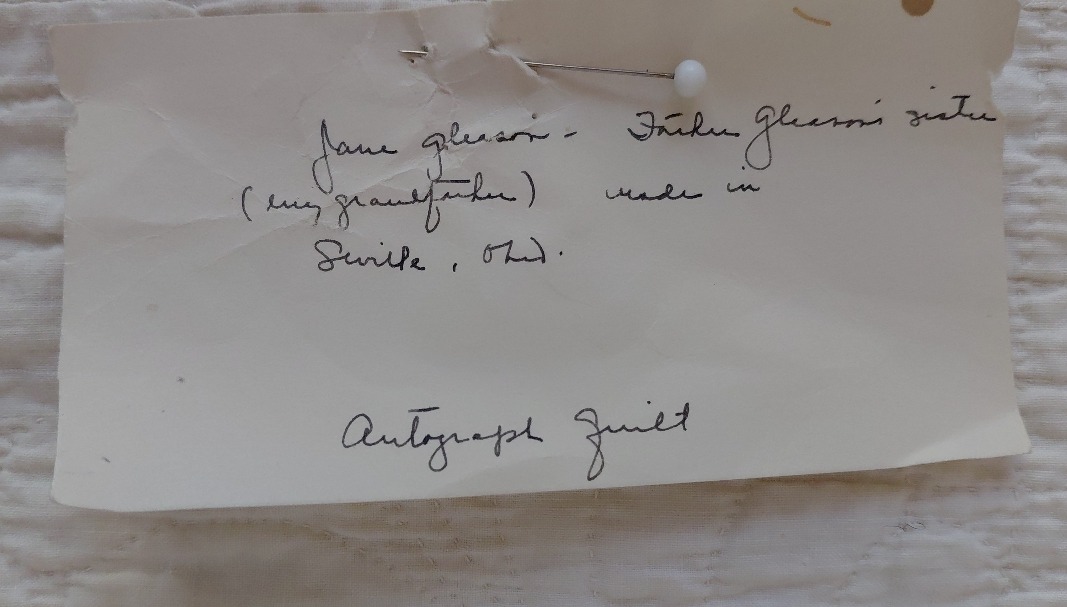 Jane Gleason - Father Gleason's sister
(my grandfather) made in
Seville, Ohio.
Autograph Quilt